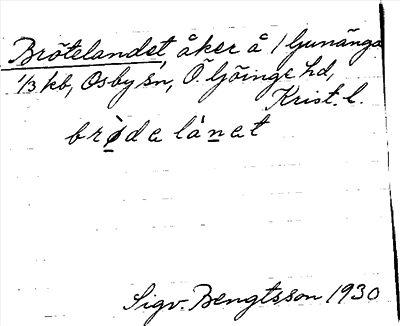 Brötelandet, åker å Ljunänga
1/3 kb, Osby sn, Ö. Göinge hd,
Krist. l.
brø̀de lánet
Sigv. Bengtsson 1930